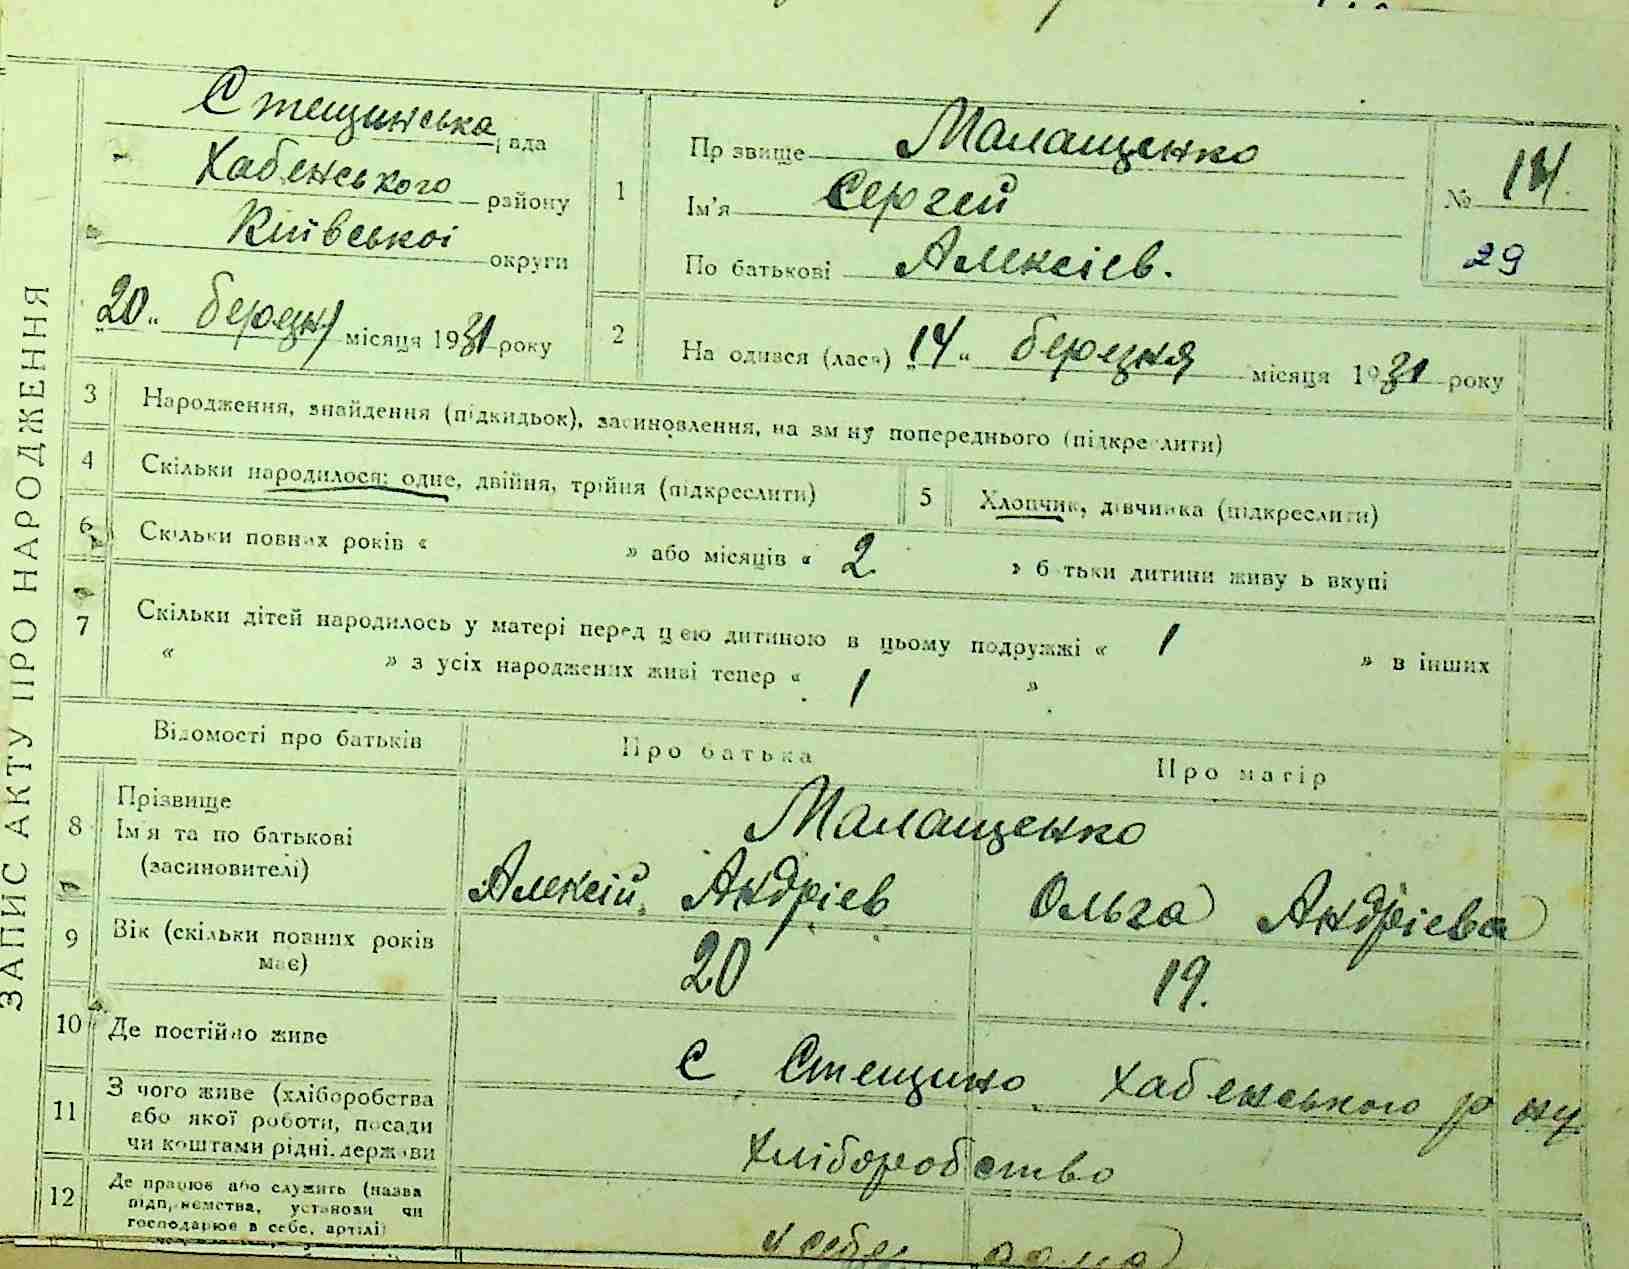 ЗАПИС АКТУ ПРО НАРОДЖЕННЯ
Стещинська рада
Хабенського району
Київської округи
"20" березня місяця 1931 року
1
Прізвище Малащенко
Ім'я Сергей
По батькові Алексіев.
№ 14.
29
2
Народився (лася) "14" березня місяця 1931 року
3 Народження, знайдення (підкидьок), засиновлення, на зміну попереднього (підкреслити)
4 Скільки народилося: одне, двійня, трійня (підкреслити)
5 Хлопчик, дівчинка (підкреслити)
6 Скільки повних років « » або місяців « 2 » батьки дитини живуть вкупі
7 Скільки дітей народилось у матері перед цією дитиною в цьому подружжі « 1 » в інших
« » з усіх народжених живі тепер « 1 »
Відомості про батьків Про батька Про матір
8 Прізвище
Ім'я та по батькові
(засиновителі)
Малащенко
Алексій Андріев Ольга Андріева
9 Вік (скільки повних років
має)
20 19.
10 Де постійно живе
с Стещино Хабенського р ну
11 З чого живе (хліборобства
або якої роботи, посади
чи коштами рідні, держави
Хліборобство
12 Де працює або служить (назва
підприємства, установи чи
господарює в себе, артілі)